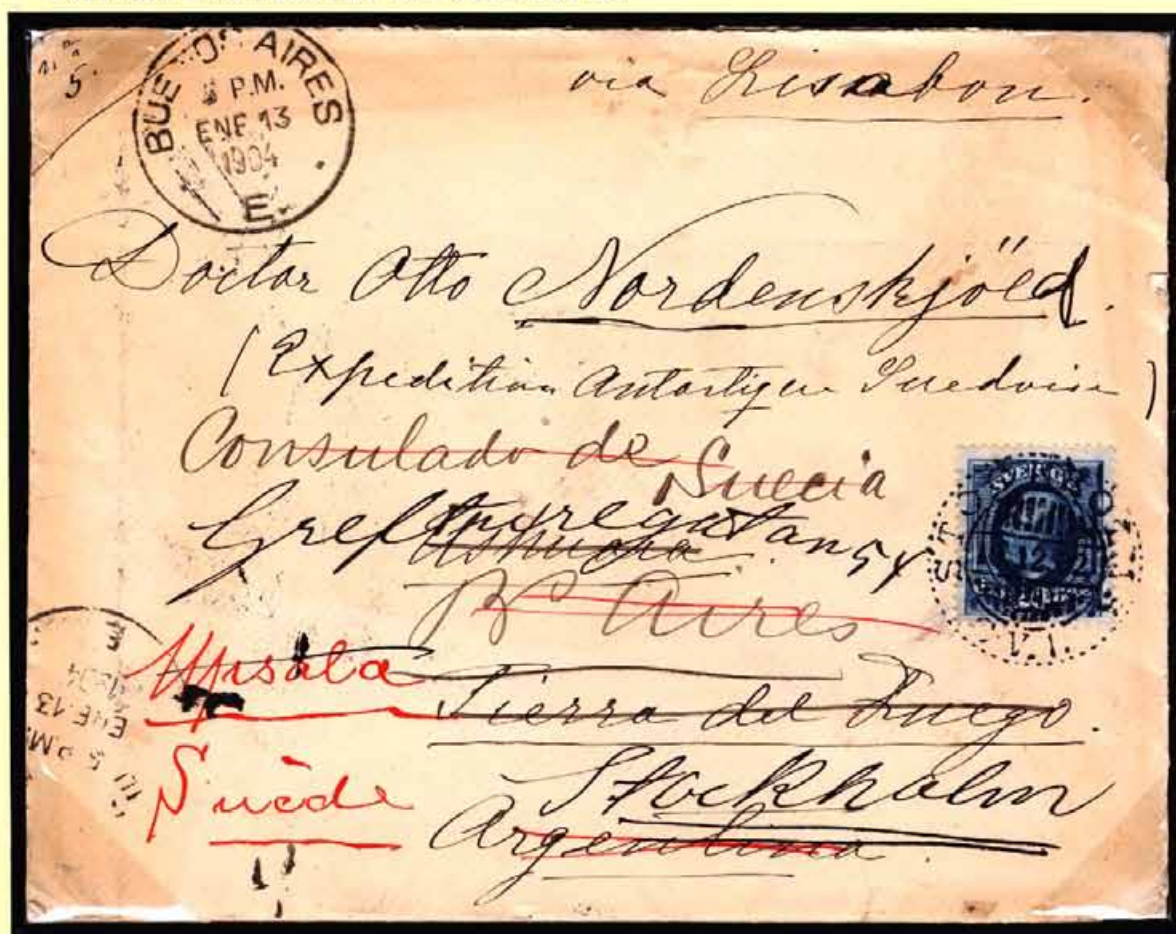 BUENOS AIRES
5 P.M.
ENE 13
1904
E.
via Lissabon.
Doctor Otto Nordenskjöld.
(Expedition Antartique Suedoise)
Consulado de Suecia
Grefturegatan 54
Ushuaia
Bs Aires
SVERIGE
STOCKHOLM
12
Upsala
Tierra del Fuego.
Suède
Stockholm
Argentina.
ENE 13
5 P.M.